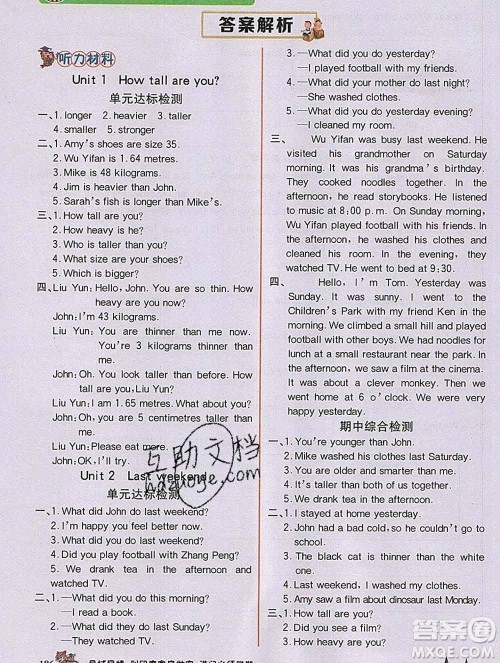 答案解析
听力材料
Unit 1 How tall are you?
单元达标检测
一、1. longer 2. heavier 3. taller
4. smaller 5. stronger
二、1. Amy's shoes are size 35.
2. Wu Yifan is 1.64 metres.
3. Mike is 48 kilograms.
4. Jim is heavier than John.
5. Sarah's fish is longer than Mike's.
三、1. How tall are you?
2. How heavy is he?
3. Who is taller than you?
4. What size are your shoes?
5. Which is bigger?
四、Liu Yun: Hello, John. You are so thin. How
heavy are you now?
John: I'm 43 kilograms.
Liu Yun: You are thinner than me now.
You're 3 kilograms thinner than
me.
John: Oh. You look taller than before. How
tall are you, Liu Yun?
Liu Yun: I am 1.65 metres. What about you?
John: Oh, you are 5 centimetres taller than
me.
Liu Yun: Please eat more.
John: OK, I'll try.
Unit 2 Last weekend
单元达标检测
一、1. What did John do last weekend?
2. I'm happy you feel better now.
3. What did you do last weekend?
4. Did you play football with Zhang Peng?
5. We drank tea in the afternoon and
watched TV.
二、1. —What did you do this morning?
—I watched TV.
2. —What did they do last weekend?
3. —What did you do yesterday?
—I played football with my friends.
4. —What did your mother do last night?
—She washed clothes.
5. —What did you do yesterday evening?
—I cleaned my room.
三、 Wu Yifan was busy last weekend. He
visited his grandmother on Saturday
morning. It was his grandma's birthday.
They cooked noodles together. In the
afternoon, he read storybooks. He listened
to music at 8:00 p.m. On Sunday morning,
Wu Yifan played football with his friends. In
the afternoon, he washed his clothes and
cleaned his room. In the evening, he
watched TV. He went to bed at 9:30.
四、 Hello, I'm Tom. Yesterday was
Sunday. It was sunny. I went to the
Children's Park with my friend Ken in the
morning. We climbed a small hill and played
football with other boys. We had lunch at
noon at a small restaurant near the park. In
the afternoon, we saw a film at the cinema.
It was about a clever monkey. Then we
went home at 6 o'clock. We were very
happy yesterday.
期中综合检测
一、1. You're younger than John.
2. Mike washed his clothes last Saturday.
3. You are older and smarter than me.
4. It was his grandma's birthday.
5. We drank tea in the afternoon.
二、1. How heavy are you?
2. John had a bad cold, so he couldn't go to
school.
3. The black cat is thinner than the white
one.
4. Amy saw a film about dinosaur last Monday.
三、1. —How tall are you?
互助文档
hdzuoye.com
答案圈
MXQE.COM